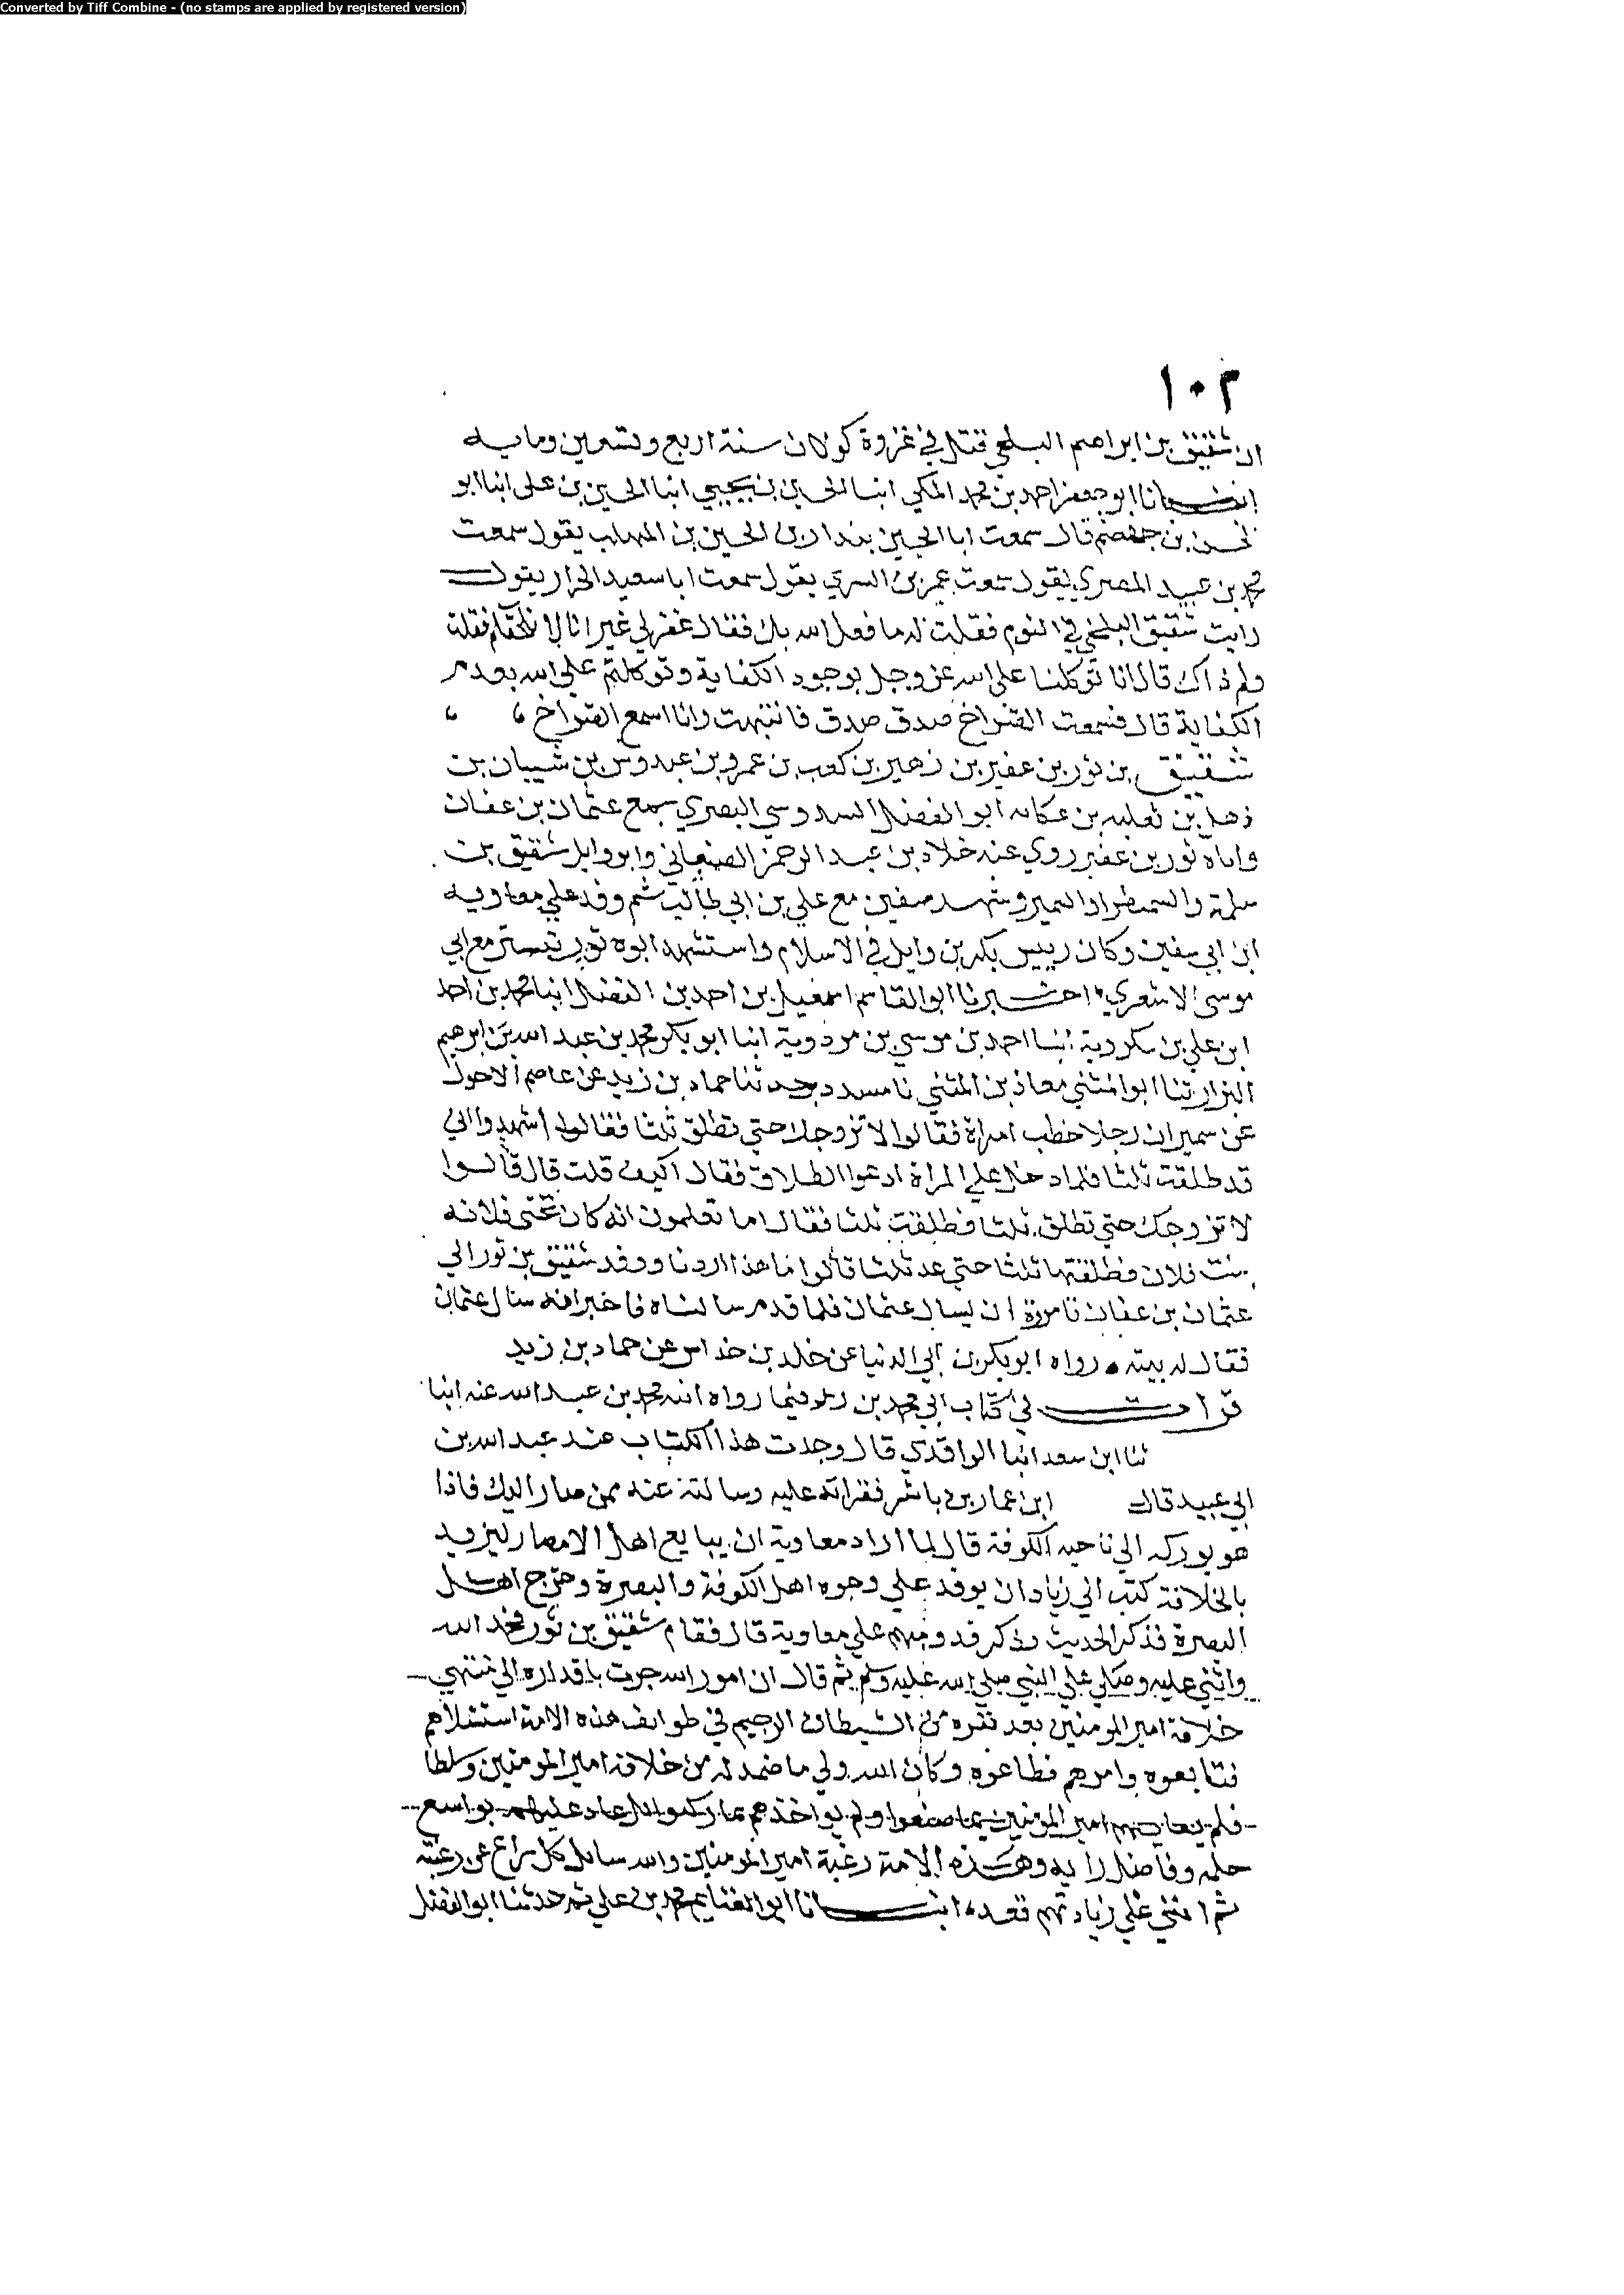 Converted by Tiff Combine - (no stamps are applied by registered version)
١٠٢
ان شقيق بن ابراهيم البلخي قتل في غزوة كولان سنة اربع وتسعين ومايه
انبانا ابو جعفر احمد بن محمد المكي انبا الحسين بن يحيي انبا الحسين بن علي انبا ابو
الحسن بن جهضم قال سمعت ابا الحسين بندار بن الحسين بن المهلب يقول سمعت
محمد بن عبيد المصري يقول سمعت عمر بن السري يقول سمعت ابا سعيد الخراز يقول
رايت شقيق البلخي في النوم فقلت له ما فعل الله بك فقال غفر لي غير انا لا نلحقكم فقلت
ولم ذاك قال انا توكلنا علي الله عز وجل بوجود الكفاية وتوكلتم علي الله بعدم
الكفاية قال فسمعت الصراخ صدق صدق فانتبهت وانا اسمع الصراخ
شقيق بن ثور بن عفير بن زهير بن كعب بن عمرو بن عبدوس بن شيبان بن
ذهل بن ثعلبه بن عكابه ابو الفضل السدوسي البصري سمع عثمان بن عفان
واباه ثور بن عفير روي عنه خلاد بن عبد الرحمن الصنعاني وابو وايل شقيق بن
سلمة والسمط او السمير وشهد صفين مع علي بن ابي طالب ثم وفد علي معاويه
ابن ابي سفين وكان رييس بكر بن وايل في الاسلام واستشهد ابوه ثور بتستر مع ابي
موسي الاشعري اخبرنا ابو القاسم اسمعيل بن احمد بن الفضل انبا محمد بن احمد
ابن علي بن سكروية انبا احمد بن موسي بن مردوية انبا ابو بكر محمد بن عبد الله بن ابرهيم
البزار ثنا ابو المثني معاذ بن المثني نا مسدد ثنا حماد بن زيد عن عاصم الاحول
عن سمير ان رجلا خطب امراة فقالوا لا نزوجك حتي تطلق ثلثا فقال اشهدوا اني
قد طلقت ثلثا فلما دخل علي المراة ادعوا الطلاق فقال اكيف قلت قال قالوا
لا نزوجك حتي تطلق ثلثا فطلقت ثلثا فقال اما تعلمون انه كان تحتي فلانه
بنت فلان فطلقتها ثلثا حتي عد ثلثا قالوا ما هذا اردنا ووفد شقيق بن ثور الي
عثمان بن عفان ان يسال عثمان فلما قدم سالناه فاخبر انه سال عثمان
فقال له نيته رواه ابو بكر بن ابي الدنيا عن خلد بن خداس عن حماد بن زيد
قرات في كتاب ابي محمد بن فيما رواه محمد بن عبد الله عنه انبا
ثنا ابن سعد انبا الواقدي قال وجدت هذا الكتاب عند عبد الله بن
ابي عبيد قال ابن عمار بن ياسر فقراته عليه وسالته عنه ممن صار اليك فاذا
هو يوركه الي ناحيه الكوفة قال لما اراد معاوية ان يبايع اهل الامصار ليزيد
بالخلافة كتب الي زياد ان يوفد علي وجوه اهل الكوفة والبصرة وخرج اهل
البصرة فذكر الحديث وذكر قدومهم علي معاوية قال فقام شقيق بن ثور فحمد الله
واثني عليه وصلي علي النبي صلي الله عليه وسلم ثم قال ان امور الله جرت باقداره الي منتهي
خلافة امير المومنين بعد نفره من الشيطان الرجيم في طوايف هذه الامة استفلاهم
فتابعوه وامرهم فطاعوه وكان الله ولي ما من خلافة امير المومنين وسلطا
فلم يعاقبهم امير المومنين بما صنعوا ولم يواخذهم بما ركبوا بل عاد عليهم بواسع
حلمه وفاضل رايه وهذه الامة رغبة امير المومنين والله سايل كل راع عن رعيته
ثم اثني علي زياد ثم قعد انبانا ابو الغنايم محمد بن علي ثم حدثنا ابو الفضل